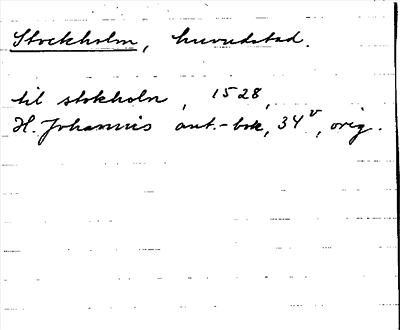 Stockholm, huvudstad.
til stokholm, 1528,
H. Johannis ant.-bok, 34v, orig.